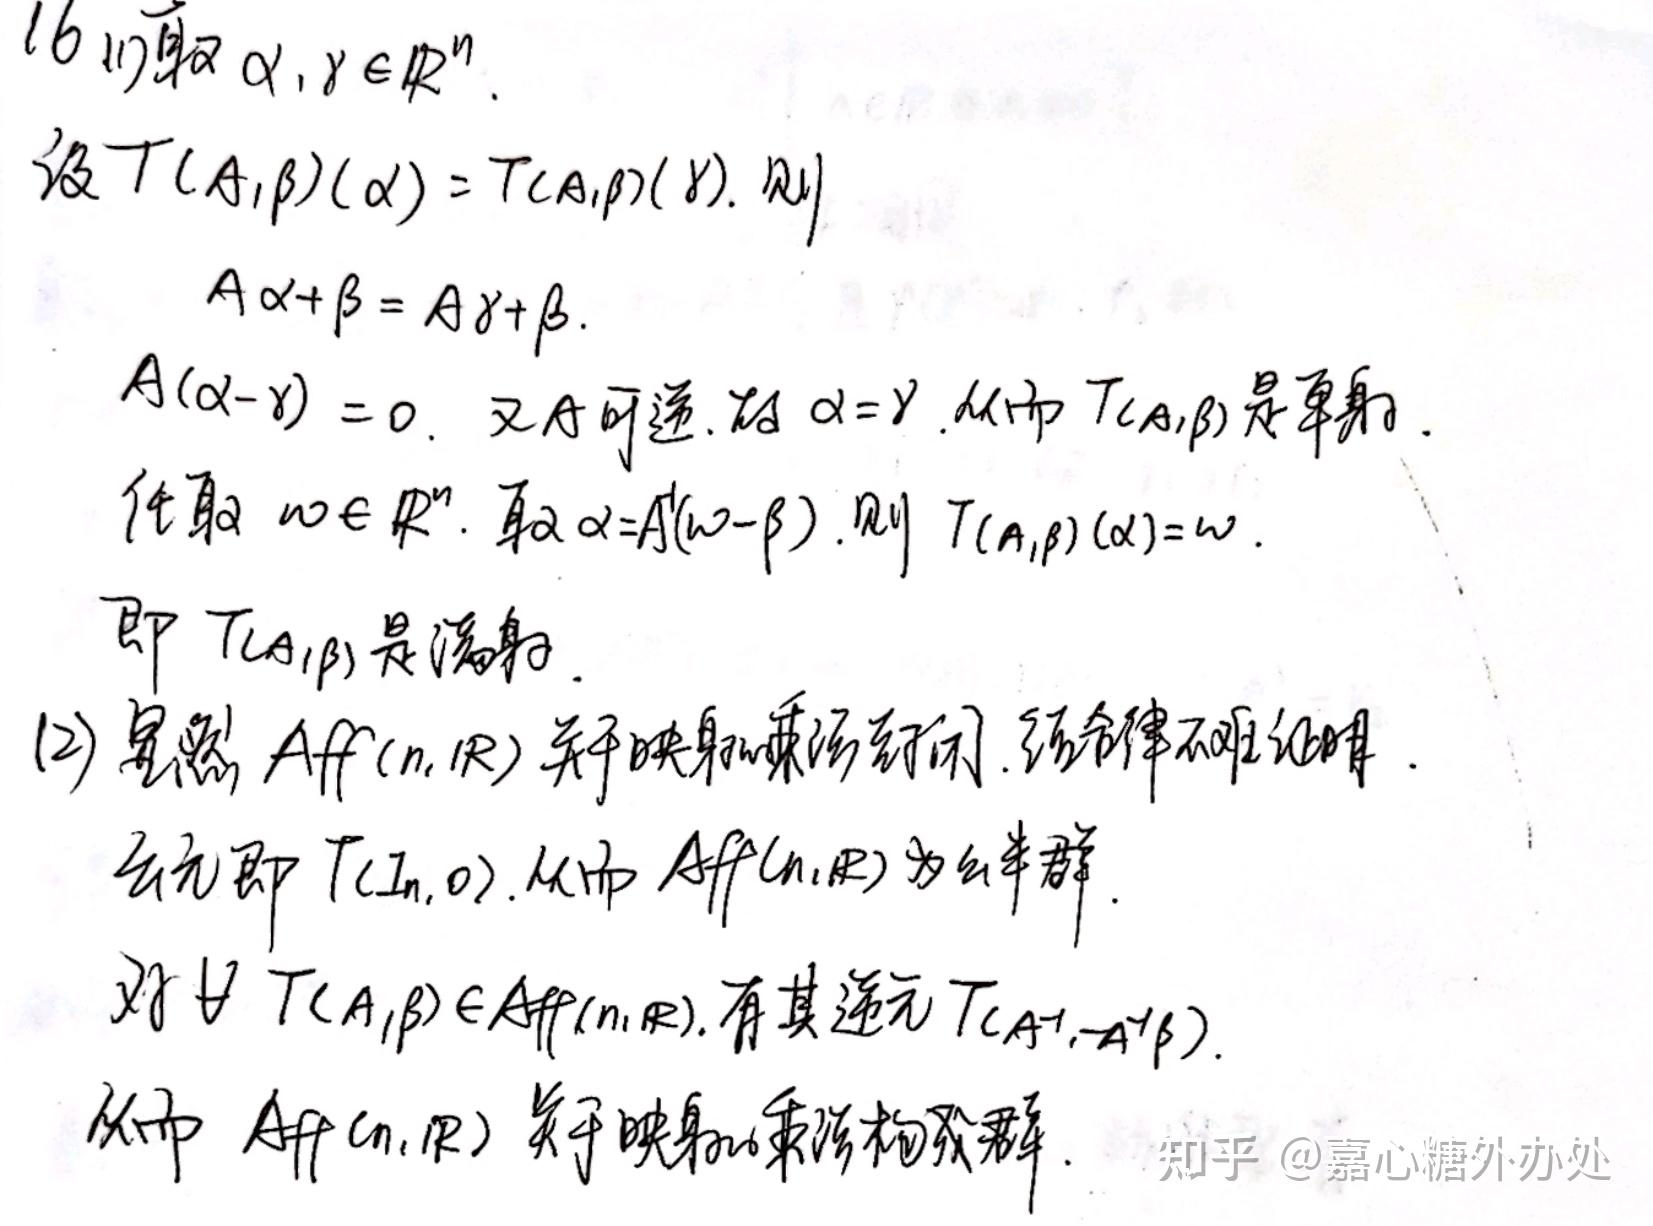 16 (1)取 α,γ∈ℝⁿ.
设 T(A,β)(α)=T(A,β)(γ). 则
Aα+β=Aγ+β.
A(α-γ)=0. 又A可逆.故 α=γ.从而 T(A,β)是单射.
任取 w∈ℝⁿ. 取α=A⁻¹(w-β).则 T(A,β)(α)=w.
即 T(A,β)是满射.
(2) 显然 Aff(n,ℝ)关于映射的乘法封闭.结合律不难证明.
幺元即 T(Iₙ,0).从而 Aff(n,ℝ)为幺半群.
对∀ T(A,β)∈Aff(n,ℝ).有其逆元 T(A⁻¹,-A⁻¹β).
从而 Aff(n,ℝ)关于映射的乘法构成群.
知乎 @嘉心糖外办处